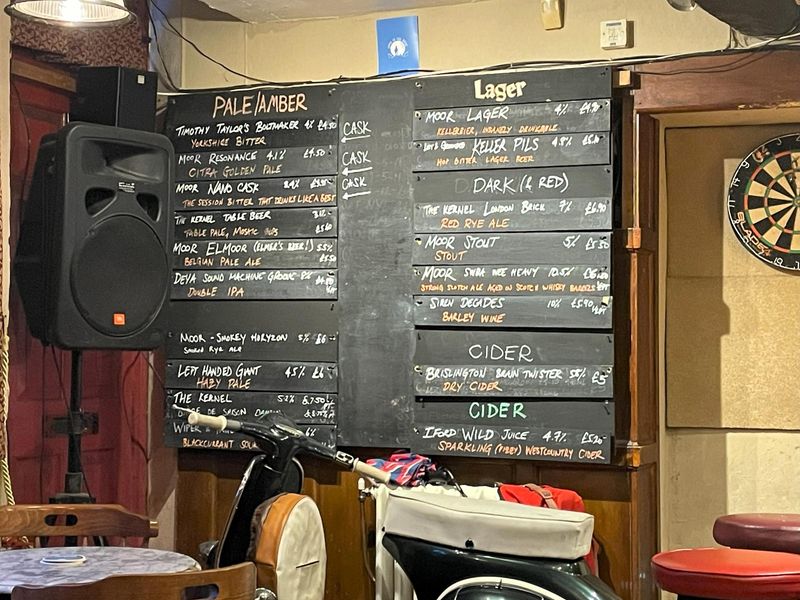 PALE/AMBER
TIMOTHY TAYLOR'S BOLTMAKER 4% £4.50
YORKSHIRE BITTER
CASK
MOOR RESONANCE 4.1% £4.50
CITRA GOLDEN PALE
CASK
MOOR NANO CASK
THE SESSION BITTER THAT DRINKS LIKE A BEST
CASK
THE KERNEL TABLE BEER
TABLE PALE, MOSAIC
MOOR ELMOOR (ELMER'S BEER!) 5.5%
BELGIAN PALE ALE £5.50
DEYA SOUND MACHINE GROOVE
DOUBLE IPA
MOOR - SMOKEY HORYZON 5% £6
SMOKED RYE ALE
LEFT HANDED GIANT 4.5% £6
HAZY PALE
THE KERNEL
DE SAISON
WIPER
BLACKCURRANT SOUR
Lager
MOOR LAGER 4%
KELLERBIER, INSANELY DRINKABLE
KELLER PILS
HOP BITTER LAGER BEER
DARK (& RED)
THE KERNEL LONDON BRICK 7% £6.90
RED RYE ALE
MOOR STOUT 5% £5.50
STOUT
MOOR WEE HEAVY 10.5%
STRONG SCOTCH ALE AGED IN SCOTCH WHISKY BARRELS
SIREN DECADES 10% £5.90
BARLEY WINE
CIDER
BRISLINGTON BRAIN TWISTER £5
DRY CIDER
CIDER
IFORD WILD JUICE 4.7% £5.20
SPARKLING WESTCOUNTRY CIDER
JBL